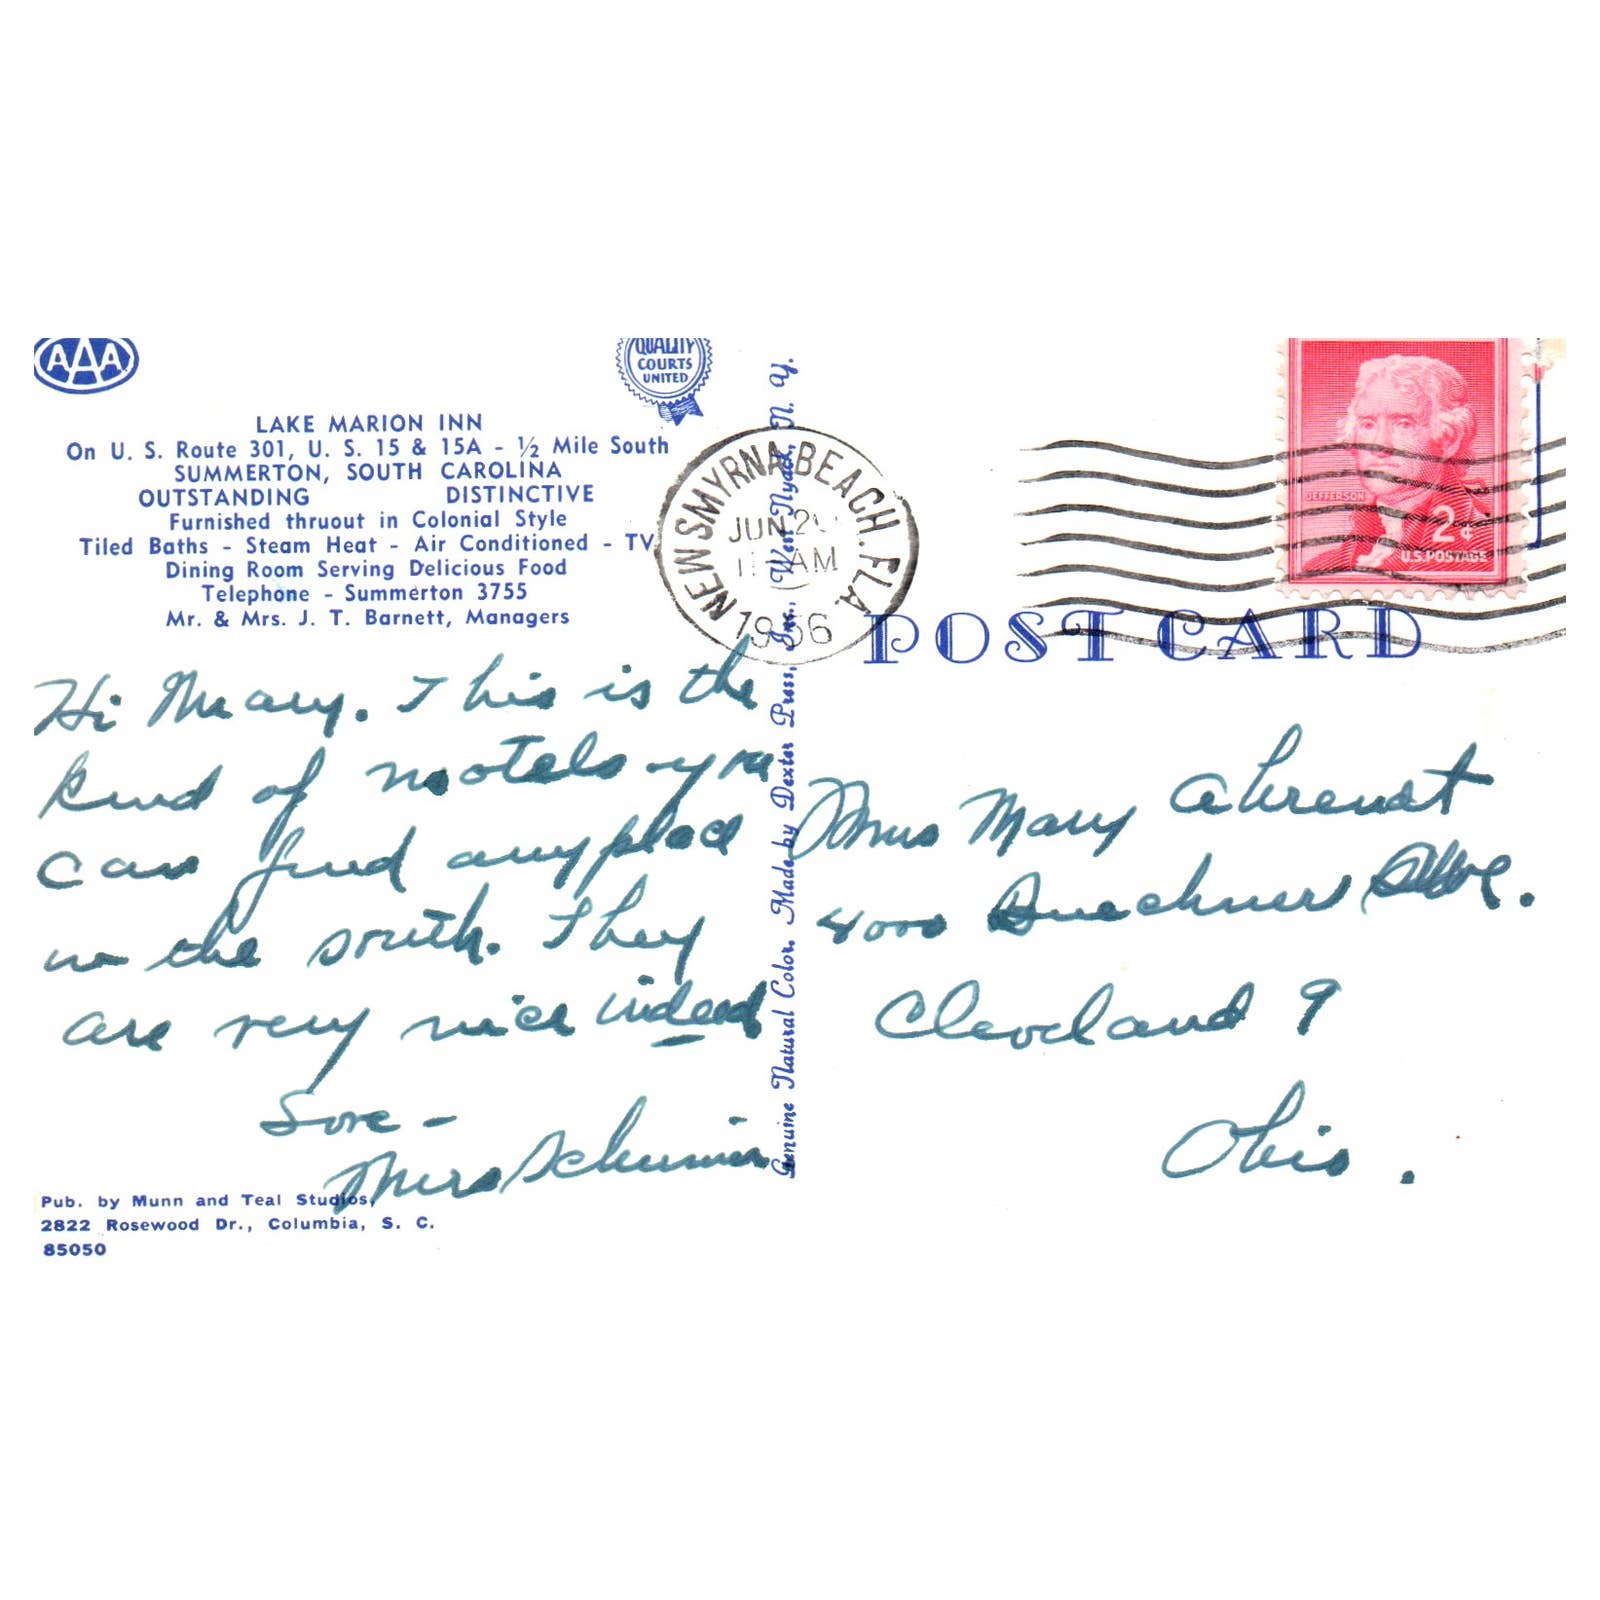 AAA
QUALITY
COURTS
UNITED
LAKE MARION INN
On U. S. Route 301, U. S. 15 & 15A - ½ Mile South
SUMMERTON, SOUTH CAROLINA
OUTSTANDING DISTINCTIVE
Furnished thruout in Colonial Style
Tiled Baths - Steam Heat - Air Conditioned - TV
Dining Room Serving Delicious Food
Telephone - Summerton 3755
Mr. & Mrs. J. T. Barnett, Managers
Hi Mary. This is the
kind of motels you
can find anyplace
in the south. They
are very nice indeed
Love -
Mrs
Pub. by Munn and Teal Studios,
2822 Rosewood Dr., Columbia, S. C.
85050
Genuine Natural Color. Made by Dexter Press, Inc., West Nyack, N. Y.
NEW SMYRNA BEACH, FLA.
JUN
AM
1956
JEFFERSON
2¢
U.S. POSTAGE
POST CARD
Mrs Mary Ahrendt
4000 Buechner Ave.
Cleveland 9
Ohio.